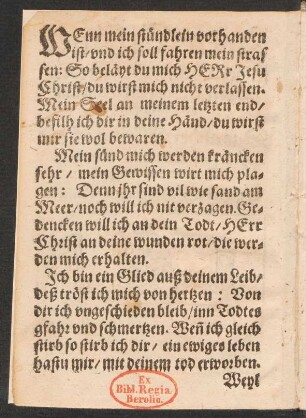 WEnn mein stündlein vorhanden
ist/vnd ich soll fahren mein stras
sen: So beläyt du mich HERr Jesu
Christ/du wirst mich nicht verlassen.
Mein Seel an meinem letzten end/
befilh ich dir in deine Händ/du wirst
mir sie wol bewaren.
Mein sünd mich werden kräncken
sehr/ mein Gewissen wirt mich pla-
gen: Denn jhr sind vil wie sand am
Meer/noch will ich nit verzagen. Ge-
dencken will ich an dein Todt/HErr
Christ an deine wunden rot/die wer-
den mich erhalten.
Ich bin ein Glied auß deinem Leib/
deß tröst ich mich von hertzen: Von
dir ich vngeschieden bleib/inn Todtes
gfahr vnd schmertzen. Weñ ich gleich
stirb so stirb ich dir/ ein ewiges leben
hastu mir/mit deinem tod erworben.
Weyl
Ex
Bibl. Regia
Berolin.